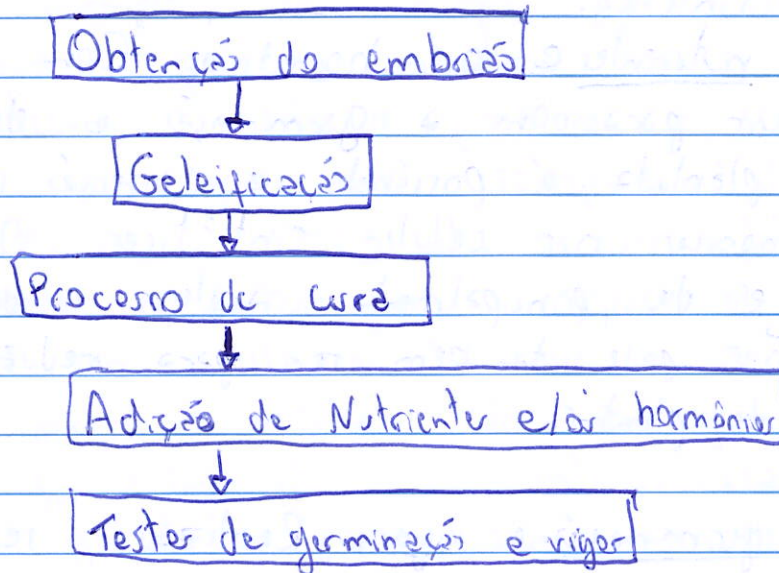 Obtenção do embrião
Geleificação
Processo de cura
Adição de Nutrientes e/ou hormônios
Testes de germinação e vigor